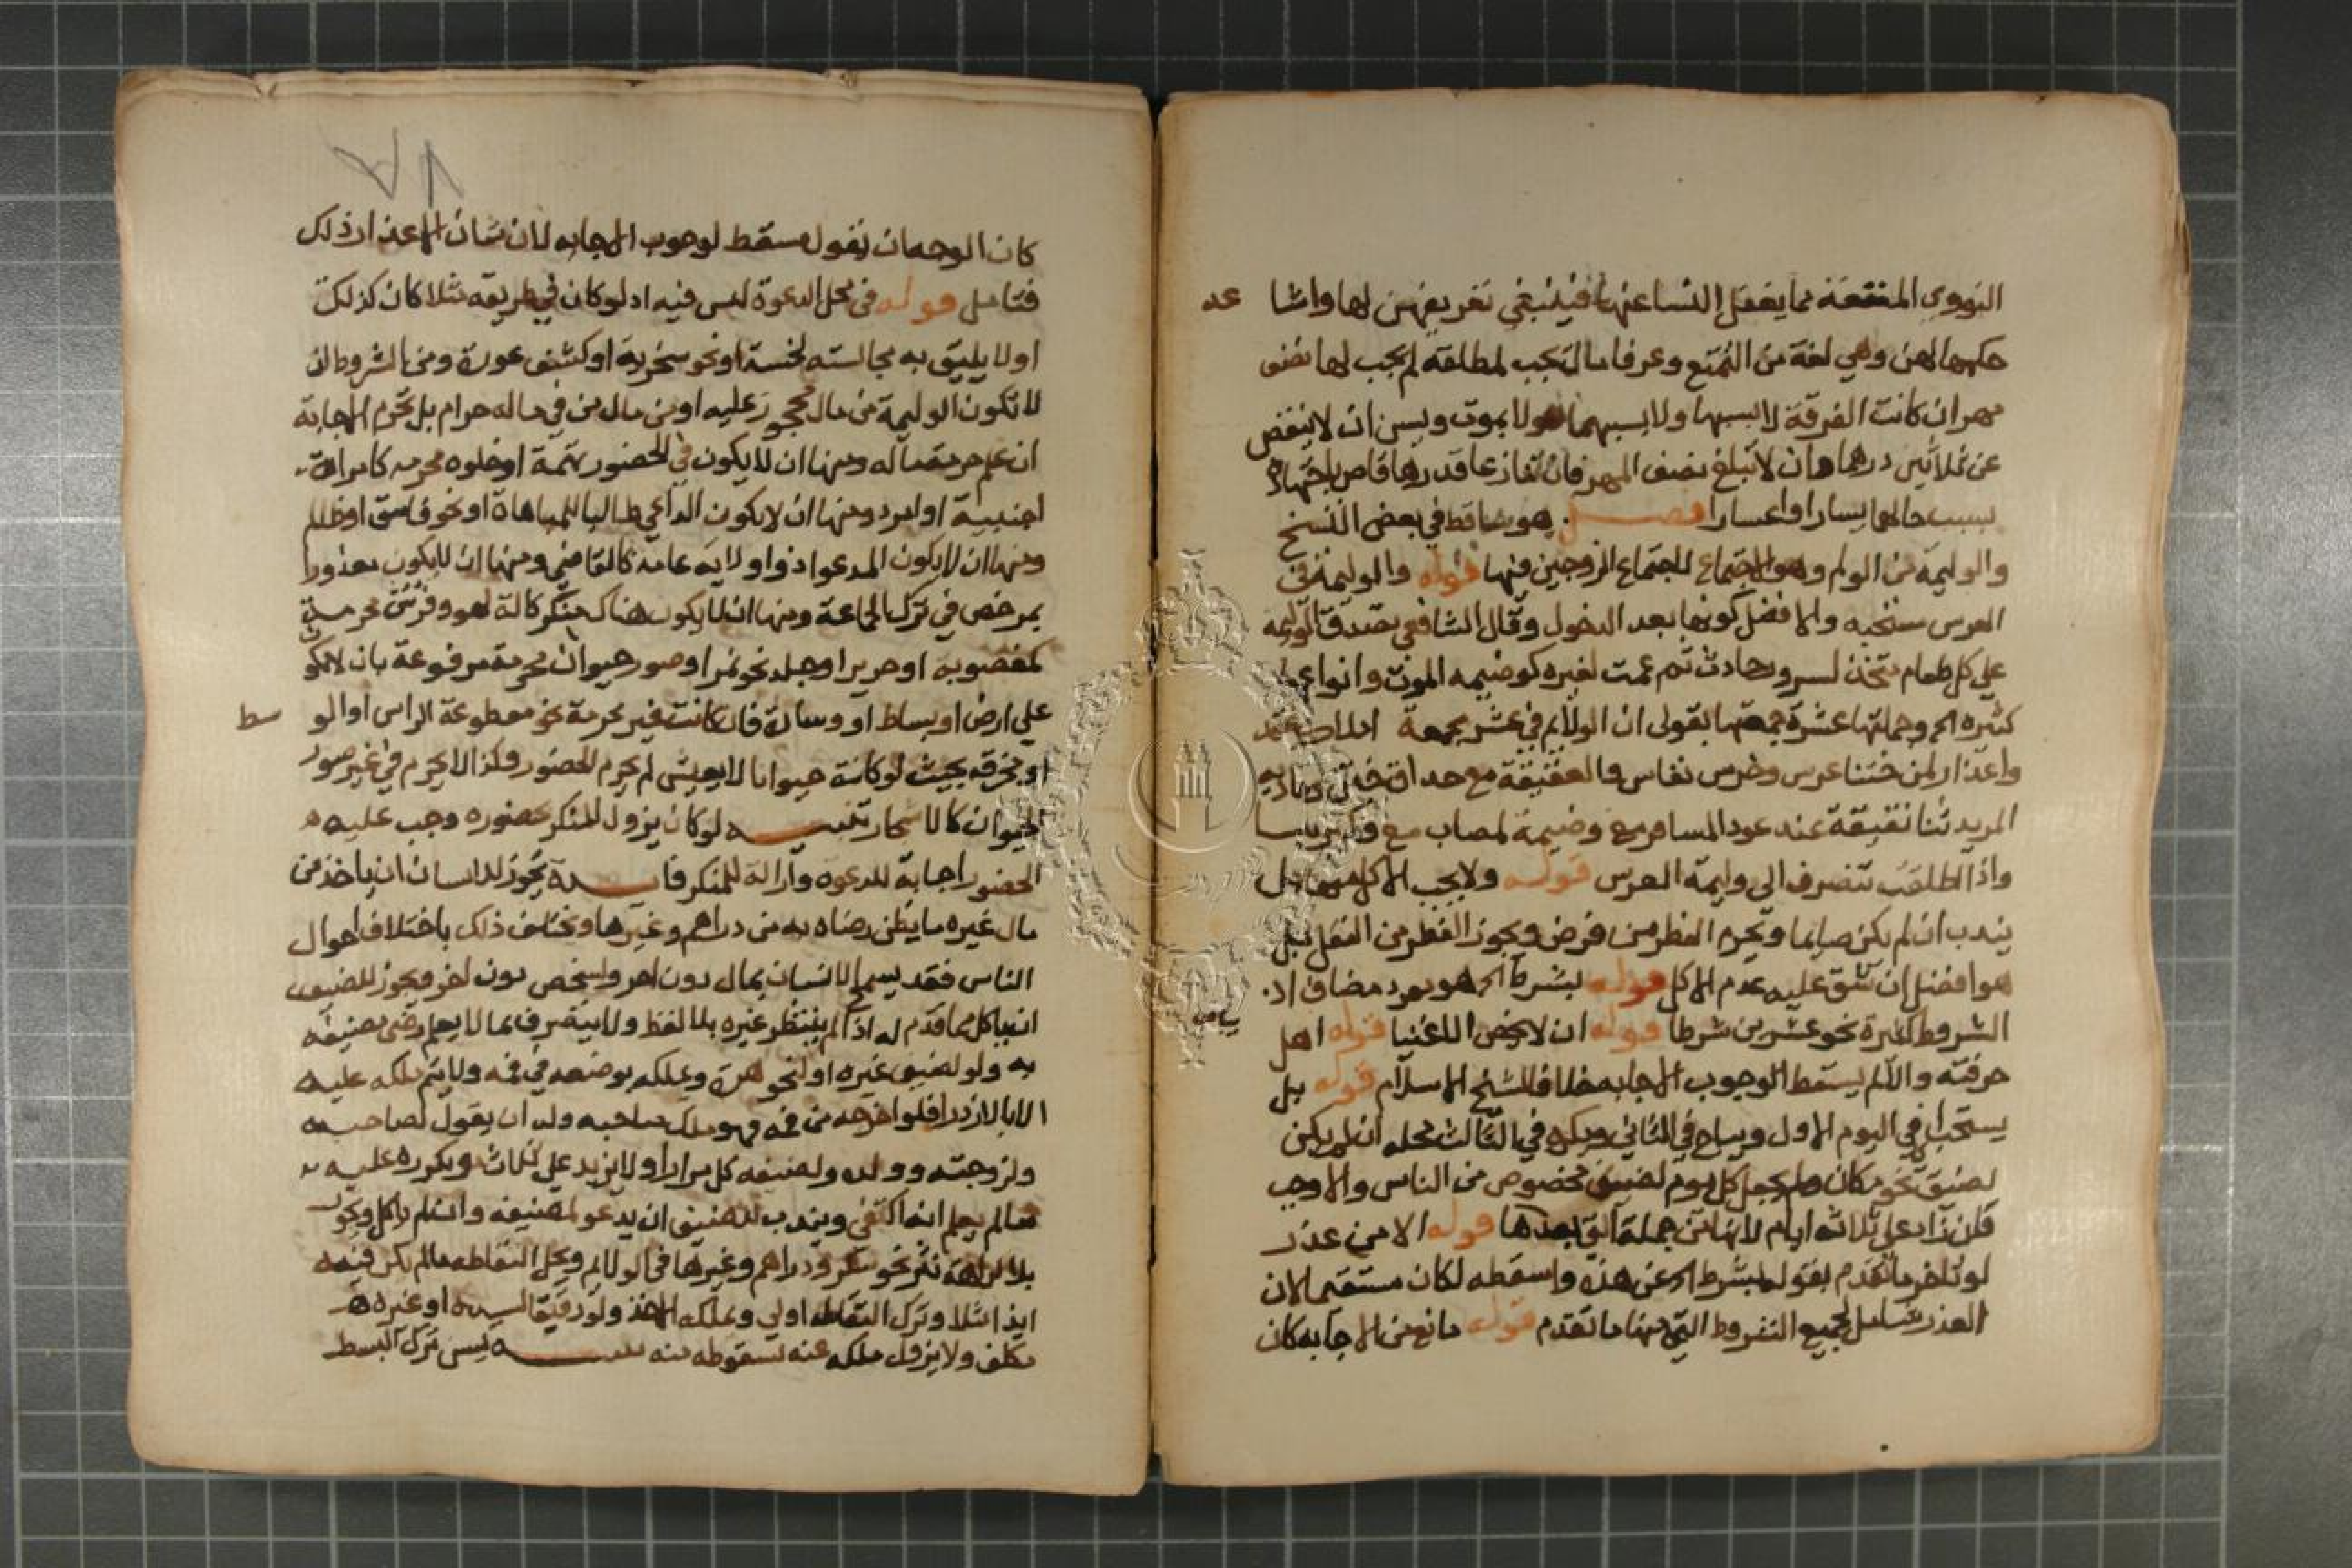 النووي المتعة مما يغفل النسا عنها فينبغي تعريفهن لها واشاعه
حكمها لهن وهي لغة من التمتع وعرفا مال يجب لمطلقة لم يجب لها نصف
مهر ان كانت الفرقة لا بسببها ولا بسببهما ولا بموت ويسن ان لا ينقص
عن ثلاثين درهما وان لا تبلغ نصف المهر فان تنازعا قدرها قاض باجتهاده
بسبب حالهما يسارا واعسارا فصل هو ساقط في بعض النسخ
والوليمة من الولم وهو الاجتماع لاجتماع الزوجين فيها قوله والوليمة في
العرس مستحبه والافضل كونها بعد الدخول وقال الشافعي تصدق الوليمة
على كل طعام يتخذ لسرور حادث ثم عمت لغيره كوضيمه الموت وانواعها
كثيره وجملتها عشرة جمعتها بقولى ان الولايم في عشر مجمعة املاك عقد
واعذار لمن ختنا عرس وخرس نفاس والعقيقة مع حداق ختم ومادبه
المريد ثنا نقيعة عند عود المسافر مع وضيمة لمصاب مع وكير بنا
واذا اطلقت تنصرف الى وليمة العرس قوله ولا يجب الاكل منها بل
يندب ان لم يكن صايما ويحرم الفطر من فرض ويجوز الفطر من النفل بل
هو افضل ان شق عليه عدم الاكل قوله بشرط هو مفرد مضاف اذ
الشروط كثيرة نحو عشرين شرطا قوله ان لا يخص الاغنيا قوله اهل
حرفته والا لم يسقط الوجوب الاجابه خلافا لشيخ الاسلام قوله بل
يستحب في اليوم الاول ويباح في الثاني ويكره في الثالث محله ان لم يكن
لضيق نحو مكان ولم يجعل كل يوم لضيف مخصوص من الناس والا وجب
فان زاد على ثلاثه ايام لانها من جملة التي بعدها قوله الا من عذر
لو تاخر ما تقدم بقوله بشرط عن هذه واسقطه لكان مستقيما لان
العذر شامل لجميع الشروط التي منها ما تقدم قوله مانع من الاجابه كان
كان الوجه ان يقول مسقط لوجوب الاجابه لان شان الاعذار ذلك
فتامل قوله في محل الدعوة ليس فيه اذ لو كان في طريقه مثلا كان كذلك
او لا يليق به مجالسته لخسة او نحو سخرية او كشف عورة ومن الشروط ان
لا تكون الوليمة من مال محجور عليه او من مال من في ماله حرام بل تحرم الاجابة
ان علم حرمة ماله ومنها ان لا يكون في الحضور تهمة او خلوه محرمه كامراة
اجنبية او امرد ومنها ان لا يكون الداعي طالبا للمباهاة او نحو فاسق او ظالم
ومنها ان لا يكون المدعو اذ ذو اولاية عامة كالقاضي ومنها ان لا يكون معذورا
بمرخص في ترك الجماعة ومنها ان لا يكون هناك منكر كالة لهو وفرش محرمة
كمغصوبه او حرير او جلد نحو نمر او صور حيوان محرمة مرفوعة بان لا تكون
على ارض او بساط او وسادة فان كانت غير محرمة نحو مقطوعة الراس او الوسط
او مخرقه بحيث لو كانت حيوانا لا يعيش لم يحرم الحضور وكذا لا يحرم في غير صور
الحيوان كالاشجار تنبيه لو كان يزول المنكر بحضوره وجب عليه
الحضور اجابة للدعوة وازالة للمنكر فايدة يجوز للانسان ان ياخذ من
مال غيره ما يظن رضاه به من دراهم وغيرها ويختلف ذلك باختلاف احوال
الناس فقد يسمح الانسان بمال دون اخر ولشخص دون اخر ويجوز للضيف
ان ياكل مما قدم له اذا لم ينتظر غيره بلا لفظ ولا يتصرف بما لا يعلم رضى مضيفه
به ولو لضيف غيره او لنحو هرة ويملكه بوضعه في فمه ولا يتم ملكه عليه
الا بالازدراد فلو اخرجه من فمه فهو ملك صاحبه وله ان يقول لصاحبه
ولزوجته وولده ولضيفه كل مرارا ولا يزيد على ثلاث ويكرره عليه
ما لم يعلم انه اكتفى ويندب للضيف ان يدعو لمضيفه وان لم ياكل ويجوز
بلا كراهة نثر نحو سكر ودراهم وغيرها في الولايم ويحل التقاطه ما لم يكن فيه
ايذا مثلا وترك التقاطه اولى ويملكه الاخذ ولو رقيقا لسيده او غيره
مكلف ولا يزول ملكه عنه بسقوطه منه تنبيه يسن ترك البسط